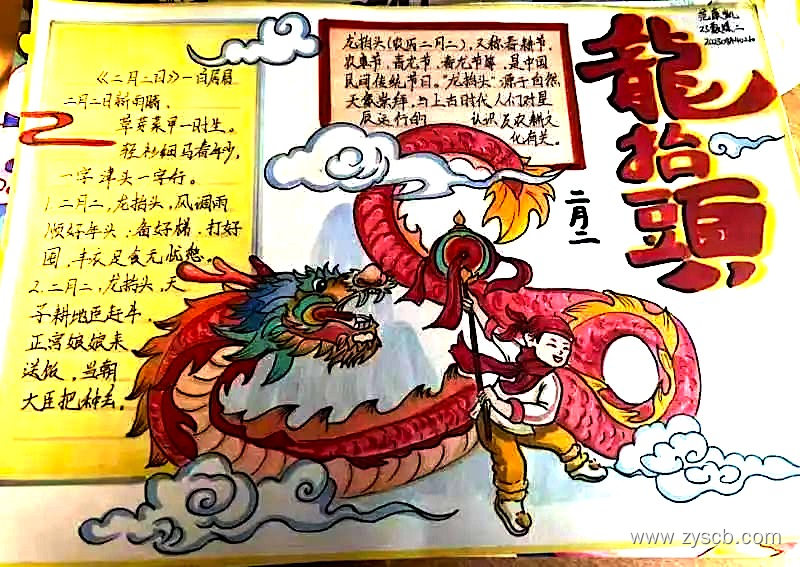 龍抬頭
二月二
龙抬头(农历二月二),又称春耕节、
农事节、青龙节、春龙节等,是中国
民间传统节日。“龙抬头”源于自然
天象崇拜,与上古时代人们对星
辰运行的 认识及农耕文
化有关。
《二月二日》一白居易
二月二日新雨晴,
草芽菜甲一时生。
轻衫细马春年少,
一字津头一字行。
1.二月二,龙抬头,风调雨
顺好年头,备好梯,打好
囤,丰衣足食无忧愁。
2.二月二,龙抬头,天
子耕地臣赶牛,
正宫娘娘来
送饭,当朝
大臣把种丢。
www.zyscb.com